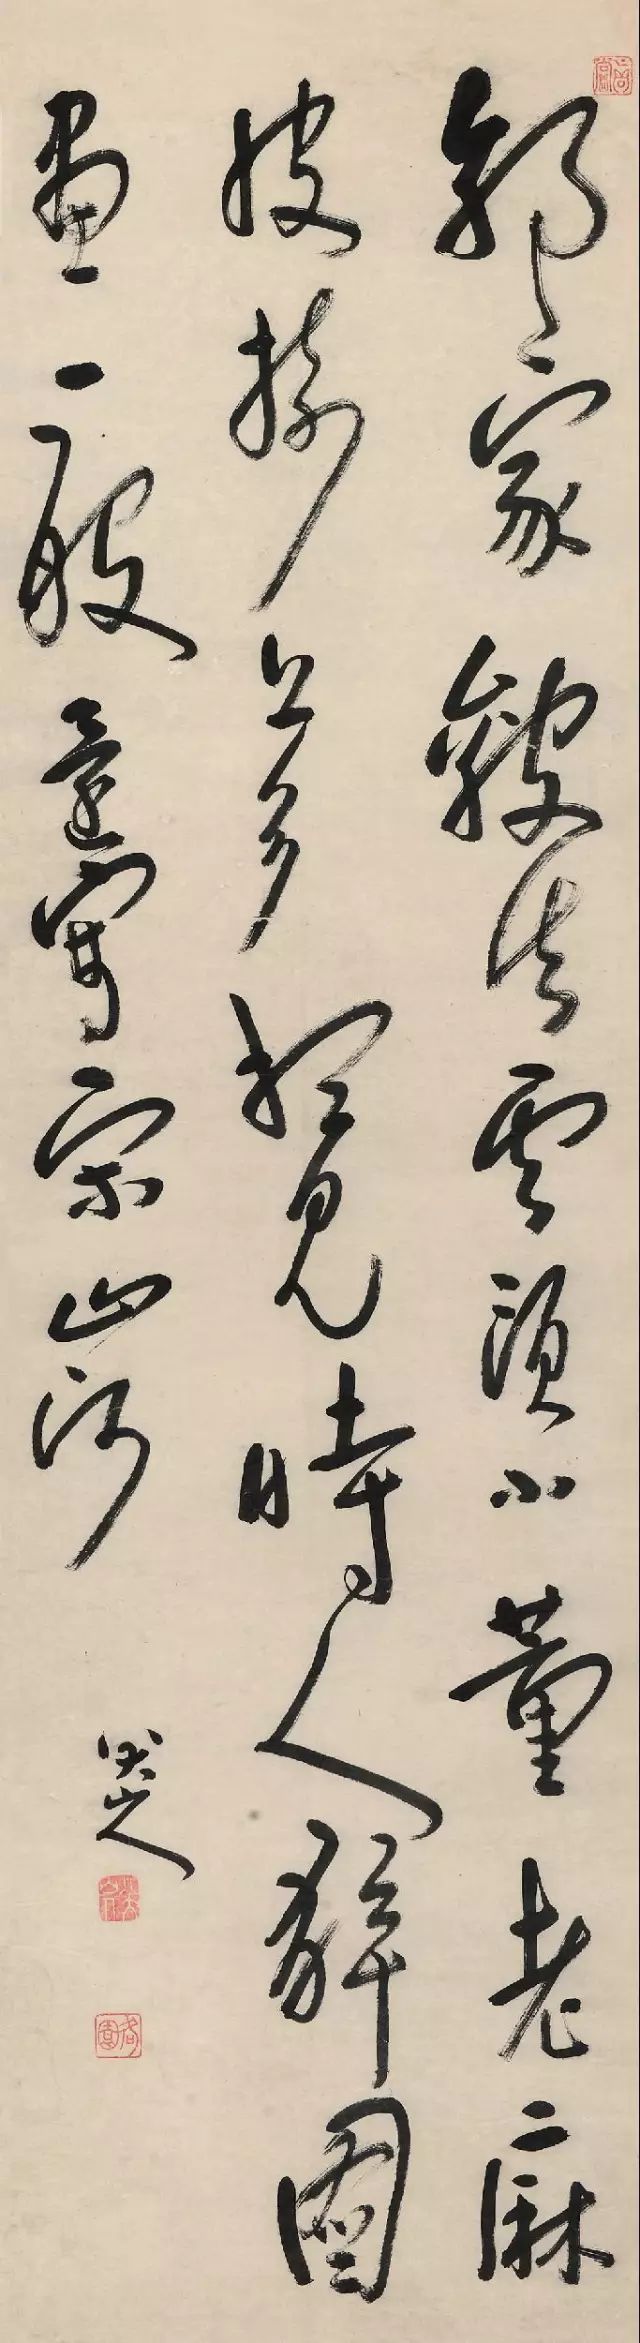 郭家皴法雲頭小董老麻
披樹上多想見時人解圖
畫一般還寫宋山河
八大山人